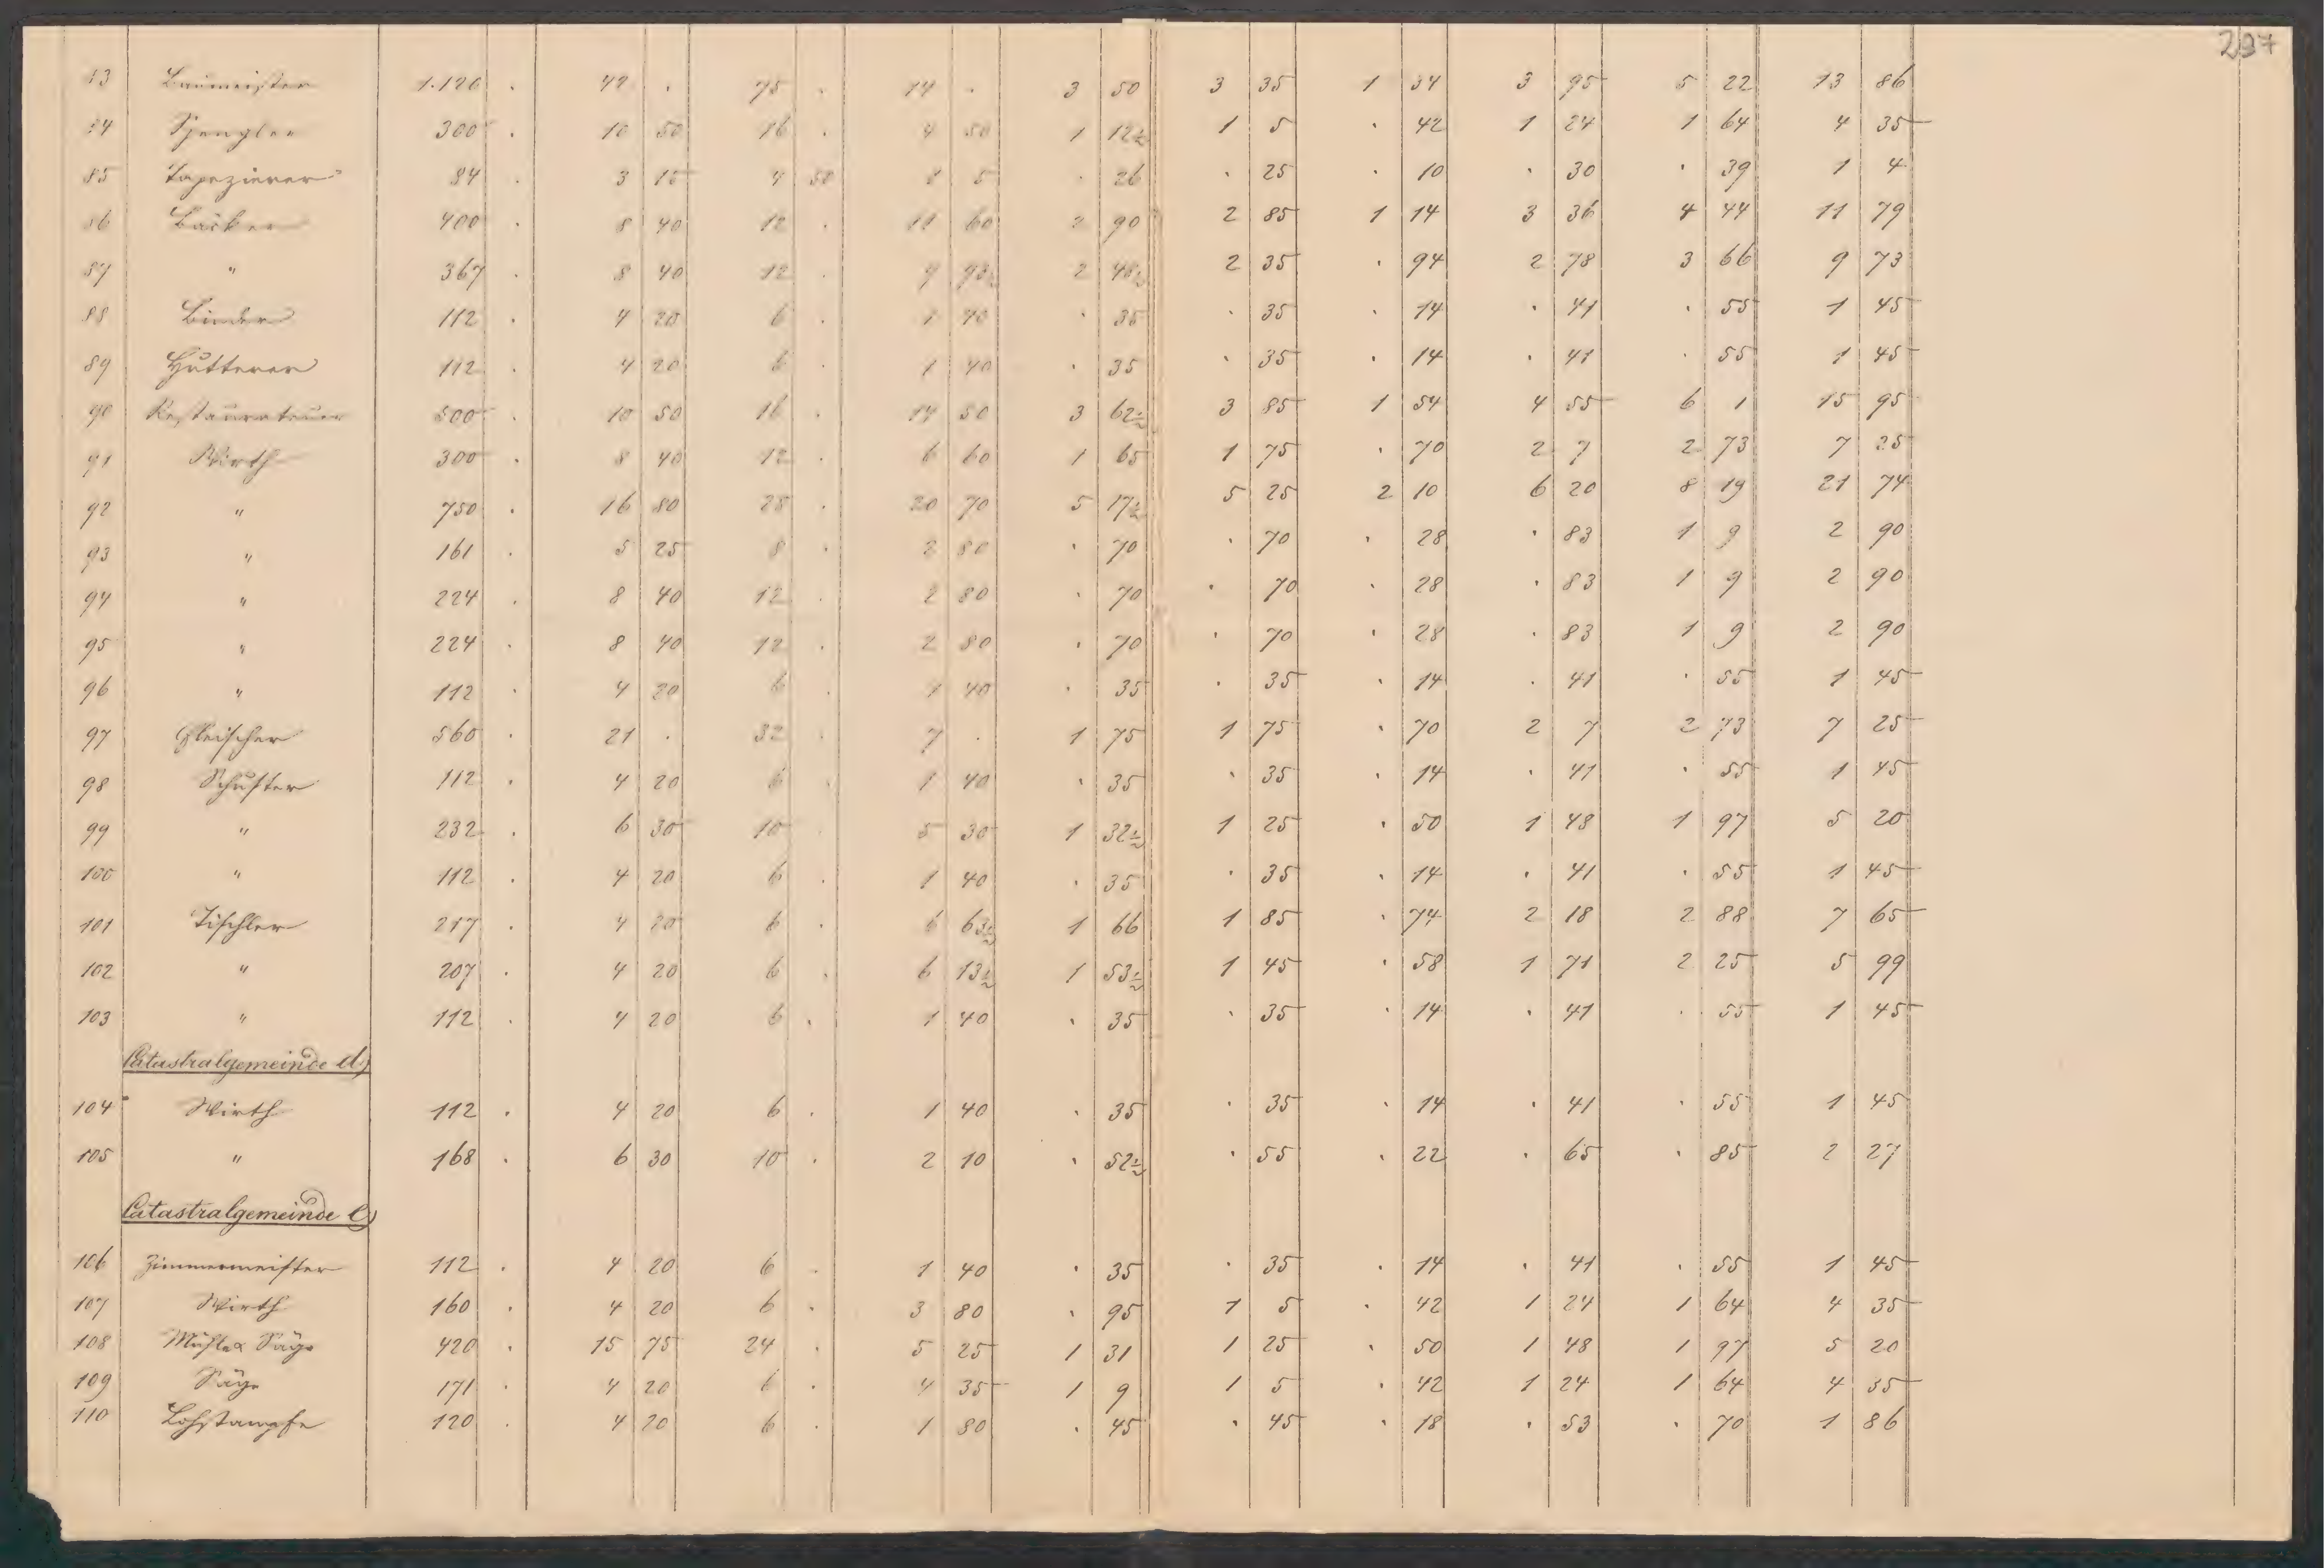 237
83 Baumeister 1.120 . 42 . 75 . 14 . 3 50 3 35 1 34 3 95 5 22 13 86
84 Spengler 300 . 10 50 16 . 4 50 1 12½ 1 5 . 42 1 24 1 64 4 35
85 Tapezierer 84 . 3 15 4 50 1 5 . 26 . 25 . 10 . 30 . 39 1 4
86 Bäcker 400 . 8 40 12 . 11 60 2 90 2 85 1 14 3 36 4 44 11 79
87 " 367 . 8 40 12 . 9 93½ 2 48½ 2 35 . 94 2 78 3 66 9 73
88 Binder 112 . 4 20 6 . 1 40 . 35 . 35 . 14 . 41 . 55 1 45
89 Hutterer 112 . 4 20 6 . 1 40 . 35 . 35 . 14 . 41 . 55 1 45
90 Restaurateur 500 . 10 50 16 . 14 50 3 62½ 3 85 1 54 4 55 6 1 15 95
91 Wirth 300 . 8 40 12 . 6 60 1 65 1 75 . 70 2 7 2 73 7 25
92 " 750 . 16 80 28 . 20 70 5 17½ 5 25 2 10 6 20 8 19 21 74
93 " 161 . 5 25 8 . 2 80 . 70 . 70 . 28 . 83 1 9 2 90
94 " 224 . 8 40 12 . 2 80 . 70 . 70 . 28 . 83 1 9 2 90
95 " 224 . 8 40 12 . 2 80 . 70 . 70 . 28 . 83 1 9 2 90
96 " 112 . 4 20 6 . 1 40 . 35 . 35 . 14 . 41 . 55 1 45
97 Fleischer 560 . 21 . 32 . 7 . 1 75 1 75 . 70 2 7 2 73 7 25
98 Schuster 112 . 4 20 6 . 1 40 . 35 . 35 . 14 . 41 . 55 1 45
99 " 232 . 6 30 10 . 5 30 1 32½ 1 25 . 50 1 48 1 97 5 20
100 " 112 . 4 20 6 . 1 40 . 35 . 35 . 14 . 41 . 55 1 45
101 Tischler 217 . 4 20 6 . 6 63½ 1 66 1 85 . 74 2 18 2 88 7 65
102 " 207 . 4 20 6 . 6 13½ 1 53½ 1 45 . 58 1 71 2 25 5 99
103 " 112 . 4 20 6 . 1 40 . 35 . 35 . 14 . 41 . 55 1 45
Catastralgemeinde d)
104 Wirth 112 . 4 20 6 . 1 40 . 35 . 35 . 14 . 41 . 55 1 45
105 " 168 . 6 30 10 . 2 10 . 52½ . 55 . 22 . 65 . 85 2 27
Catastralgemeinde e)
106 Zimmermeister 112 . 4 20 6 . 1 40 . 35 . 35 . 14 . 41 . 55 1 45
107 Wirth 160 . 4 20 6 . 3 80 . 95 1 5 . 42 1 24 1 64 4 35
108 Mühle & Säge 420 . 15 75 24 . 5 25 1 31 1 25 . 50 1 48 1 97 5 20
109 Säge 171 . 4 20 6 . 4 35 1 9 1 5 . 42 1 24 1 64 4 35
110 Lohstampfe 120 . 4 20 6 . 1 80 . 45 . 45 . 18 . 53 . 70 1 86